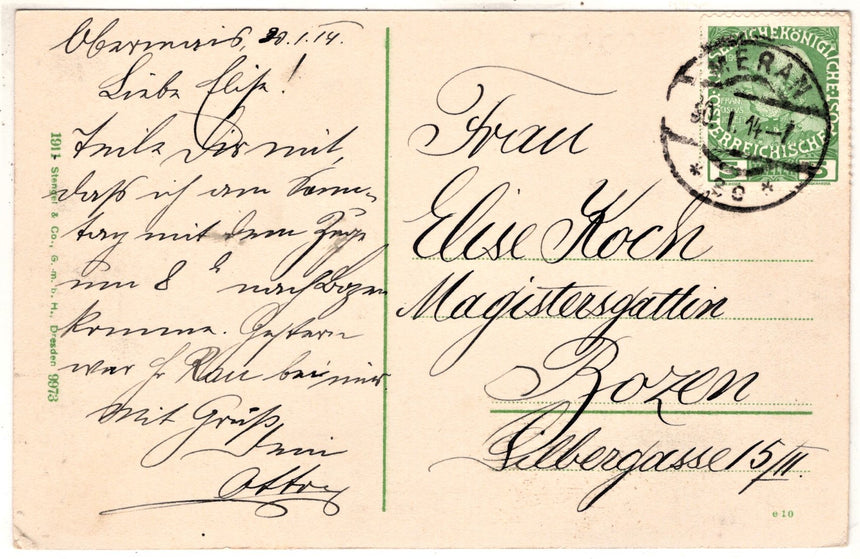 Obermais, 30.1.14.
Liebe Elise!
Teile Dir mit,
daß ich am Sonn-
tag mit dem Zuge
um 8 h nach Bozen
komme. Gestern
war Fr Rau bei mir
Mit Gruß
Dein
Otto
1911 Stengel & Co., G. m. b. H., Dresden 9973
Frau
Elise Koch
Magistersgattin
Bozen
Silbergasse 15/III.
MERAN
30.I.14-7
* 2c *
KÖNIGLICHE
ÖSTERREICHISCHE
5 5
e 10